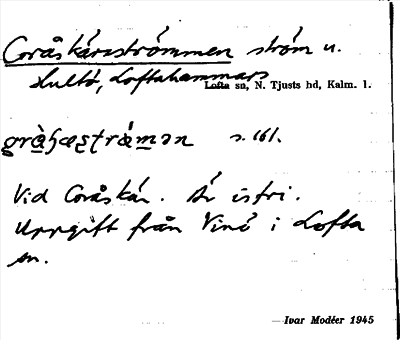 Goråskärsströmmen ström u.
Hultö, Loftahammars
Lofta sn, N. Tjusts hd, Kalm. l.
s. 161.
Vid Goråskär. Är isfri.
Uppgift från Vinö i Lofta
sn.
Ivar Modéer 1945